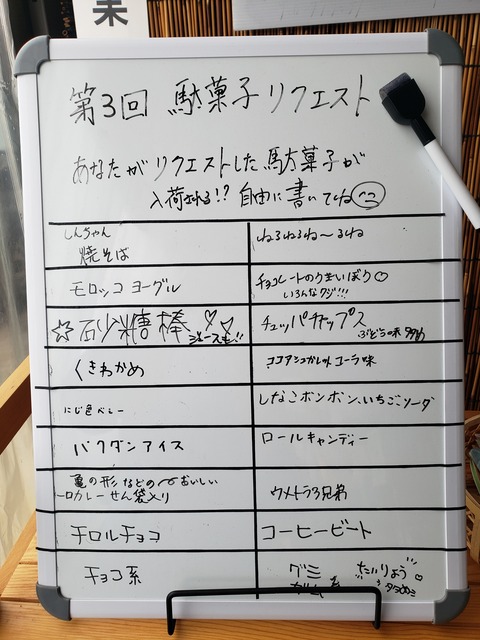 未
第3回 駄菓子リクエスト
あなたがリクエストした駄菓子が
入荷される!? 自由に書いてね
しんちゃん
焼そば
モロッコ ヨーグル
☆石少糖棒♡
ジュースも!!
くきわかめ
にじ色ベレー
バクダンアイス
亀の形などの おいしい
一口カレーせん袋入り
チロルチョコ
チョコ系
ねるねるねる〜るね
チョコレートのうまいぼう♡
いろんなクジ!!!
チュッパチャップス
ぶどう味
ココアシガレット コーラ味
しなこボンボン、いちごソーダ
ロールキャンディー
ウメトラ3兄弟
コーヒービート
グミ
ガム系
たいりょう